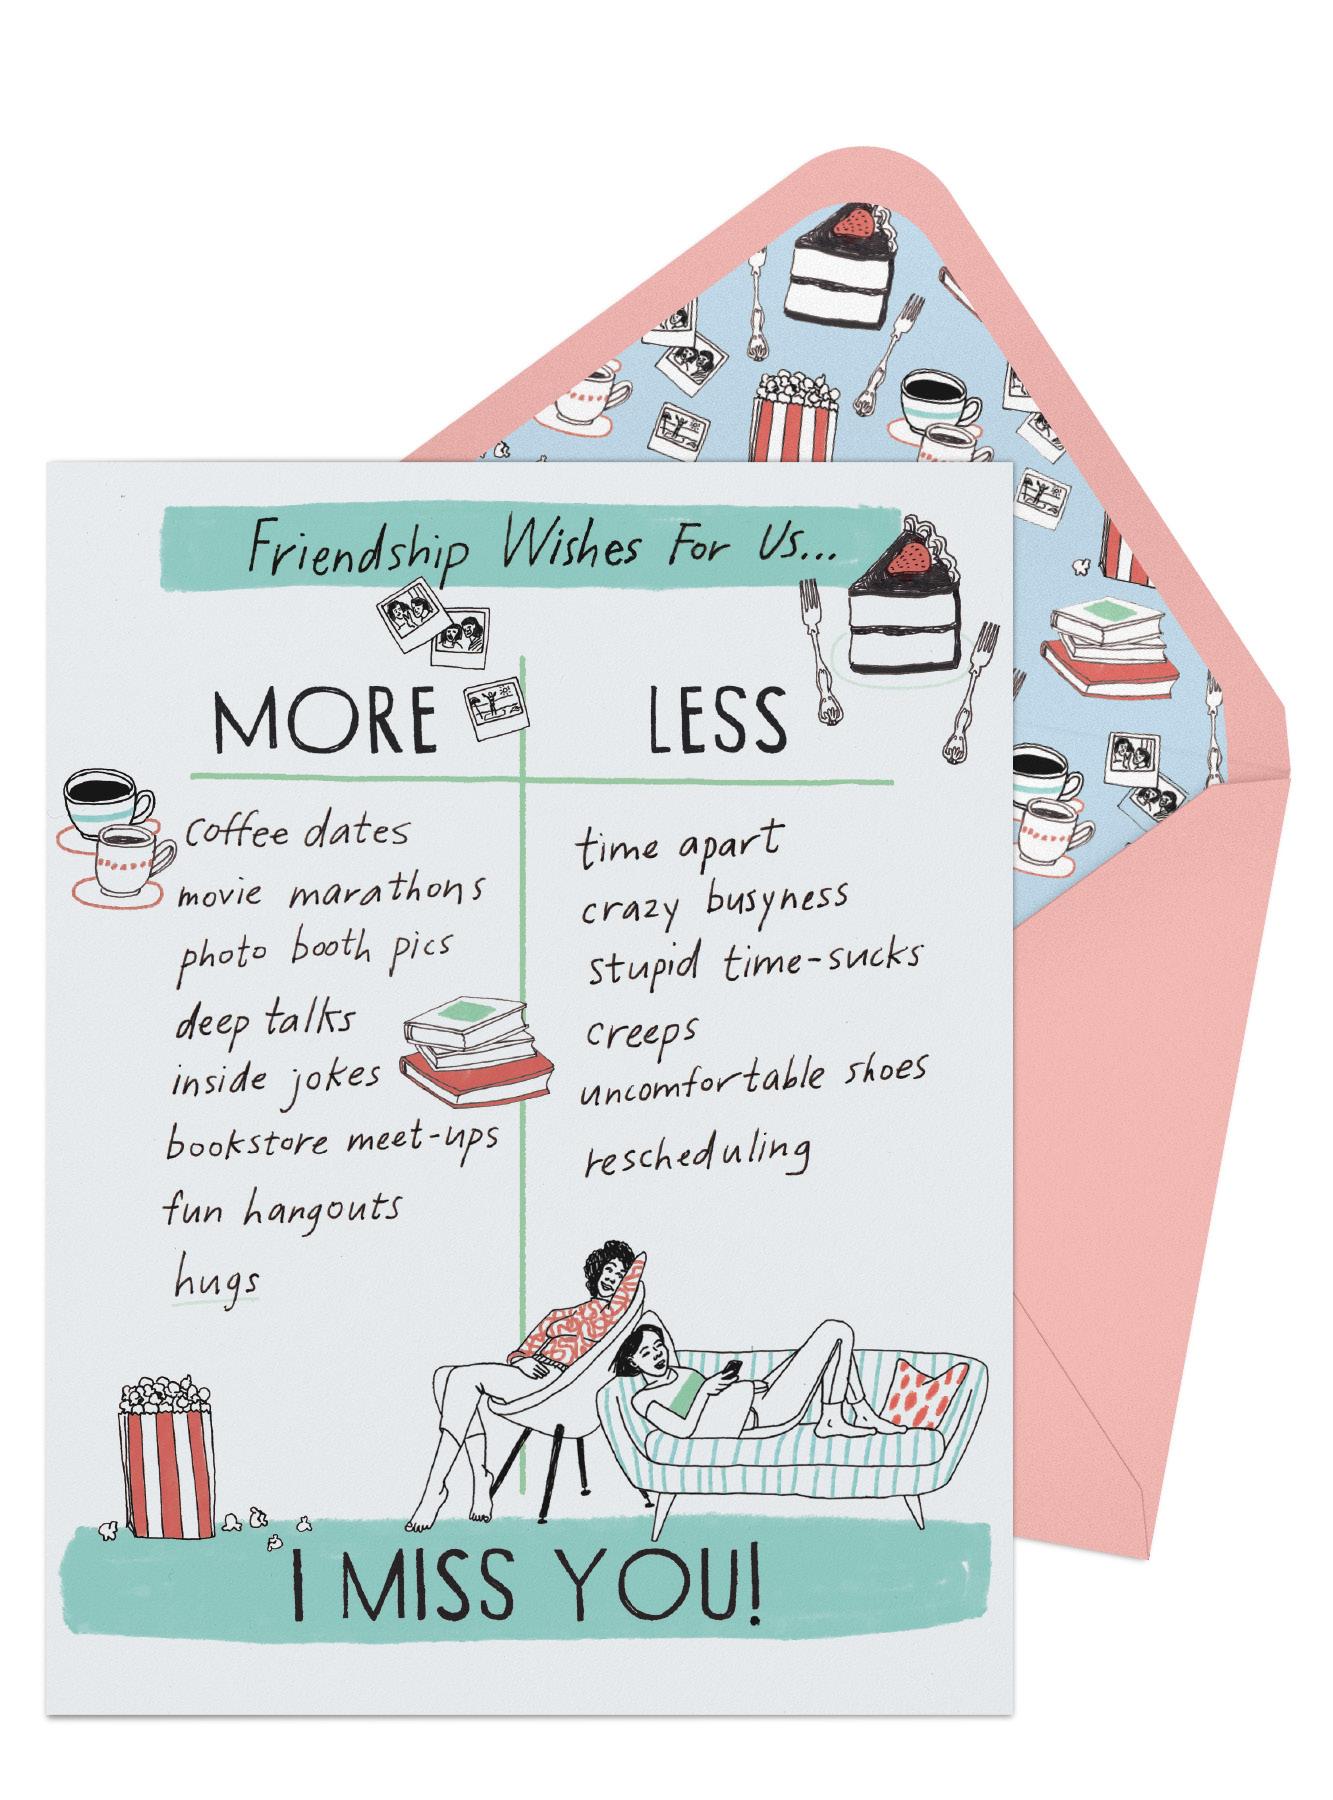 Friendship Wishes For Us...
MORE
LESS
coffee dates
movie marathons
photo booth pics
deep talks
inside jokes
bookstore meet-ups
fun hangouts
hugs
time apart
crazy busyness
stupid time-sucks
creeps
uncomfortable shoes
rescheduling
I MISS YOU!